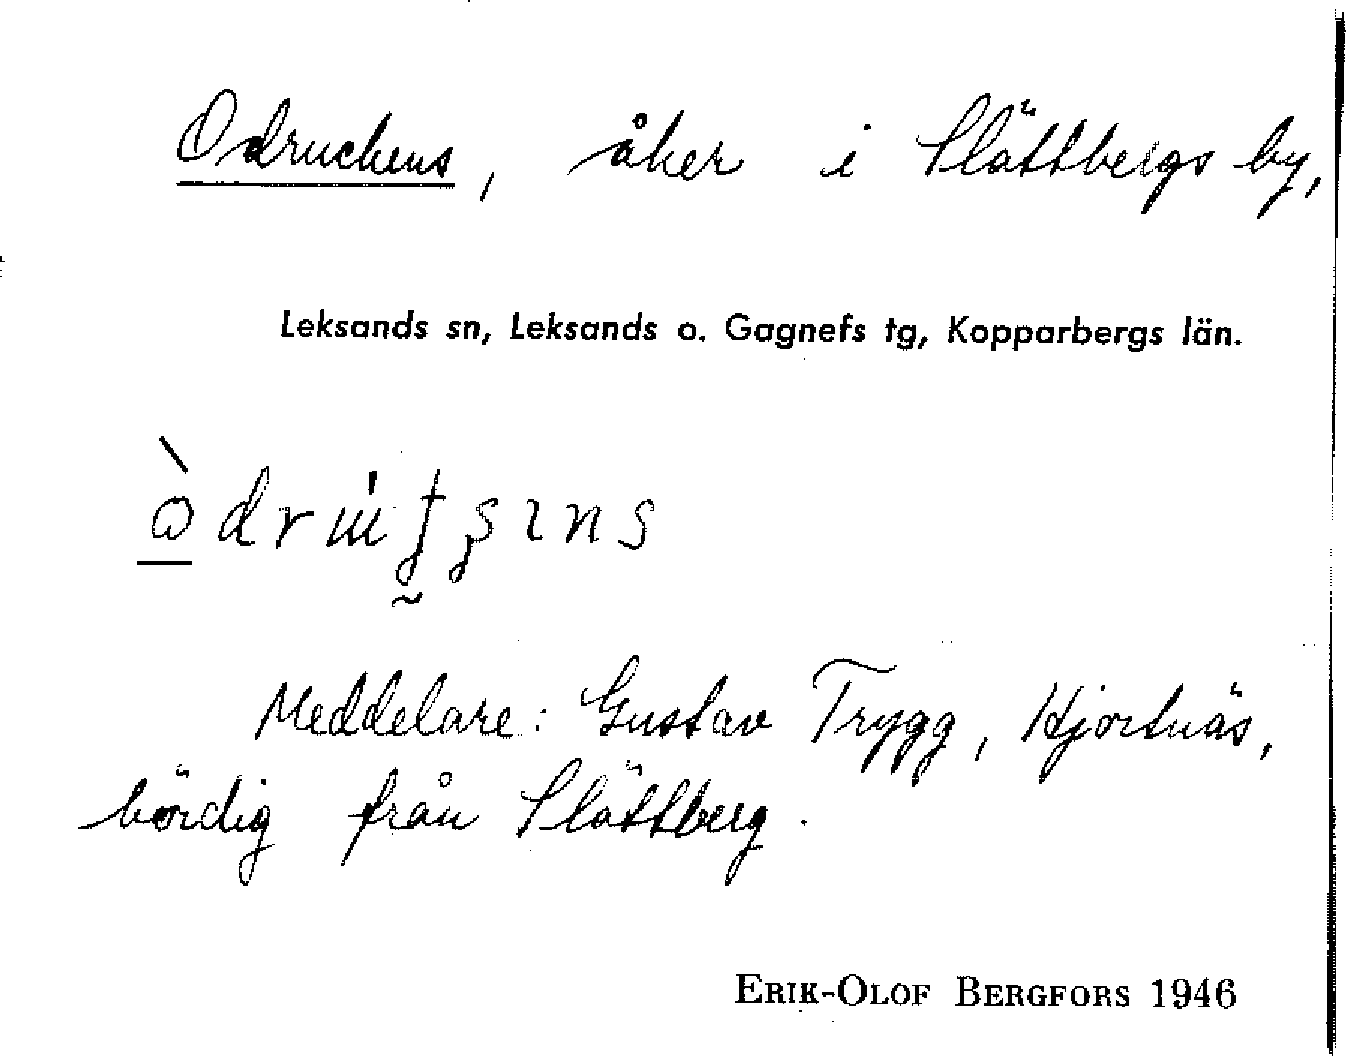 Odruckens, åker i Slättbergs by,
Leksands sn, Leksands o. Gagnefs tg, Kopparbergs län.
Meddelare: Gustav Trygg, Hjortnäs,
bördig från Slättberg.
ERIK-OLOF BERGFORS 1946